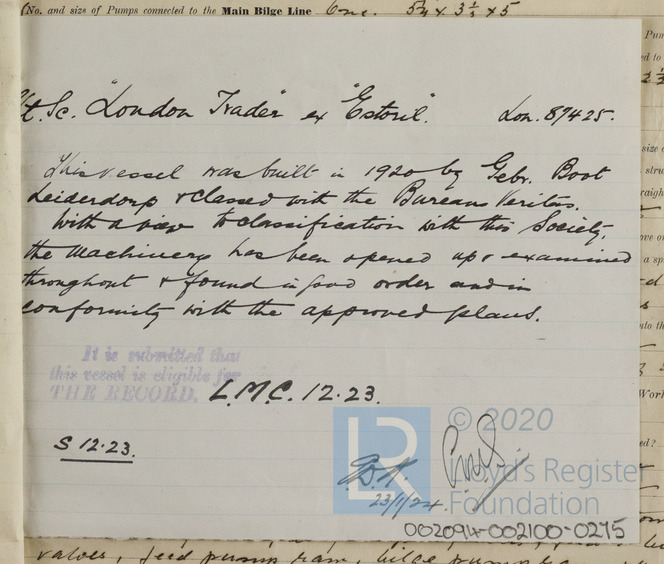 (No. and size of Pumps connected to the Main Bilge Line One. 5¼ x 3½ x 5
St. Sc. "London Trader" ex "Estoril". Lon. 87425.
This vessel was built in 1920 by Gebr. Boot
Leiderdorp & classed with the Bureau Veritas.
With a view to classification with this Society,
the Machinery has been opened up & examined
throughout & found in good order and in
conformity with the approved plans.
It is submitted that
this vessel is eligible for
THE RECORD. L.M.C. 12.23.
S 12.23.
23/1/24
LR
© 2020
Lloyd's Register
Foundation
002094-002100-0275
valves, feed pump ram, bilge pump